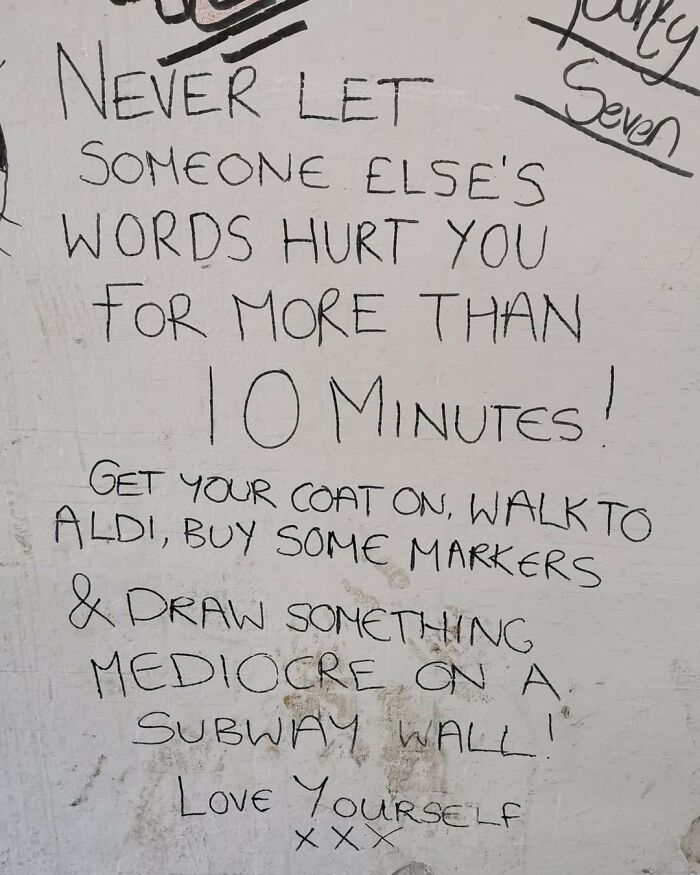 Seven
NEVER LET
SOMEONE ELSE'S
WORDS HURT YOU
FOR MORE THAN
10 MINUTES!
GET YOUR COAT ON, WALK TO
ALDI, BUY SOME MARKERS
& DRAW SOMETHING
MEDIOCRE ON A
SUBWAY WALL!
LOVE YOURSELF
xxx